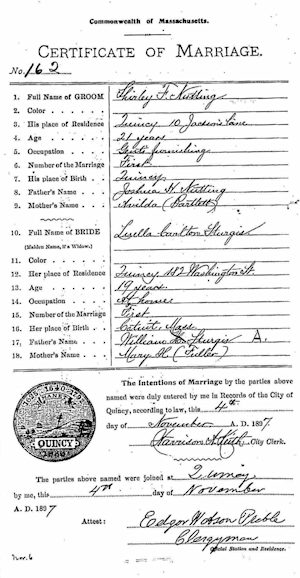 Commonwealth of Massachusetts.
CERTIFICATE OF MARRIAGE.
No. 162
1. Full Name of GROOM Shirley F. Nutting
2. Color
3. His place of Residence Quincy 10 Jackson Lane
4. Age 21 years
5. Occupation Gents furnishing
6. Number of the Marriage First
7. His place of Birth Quincy
8. Father's Name Joshua H. Nutting
9. Mother's Name (Bartlett)
10. Full Name of BRIDE Luella Carlton Sturgis
(Maiden Name, if a Widow.)
11. Color
12. Her place of Residence Quincy 182 Washington St.
13. Age 19 years
14. Occupation At home
15. Number of the Marriage First
16. Her place of Birth Mass
17. Father's Name William Sturgis A.
18. Mother's Name Mary H. (Fuller)
The Intentions of Marriage by the parties above
named were duly entered by me in Records of the City of
Quincy, according to law, this 4th
day of November A. D. 1897.
Harrison A. Keith, City Clerk.
QUINCY
The parties above named were joined at Quincy
by me, this 4th day of November
A. D. 1897
Attest: Edgar Peeble
Clergyman
Official Station and Residence.